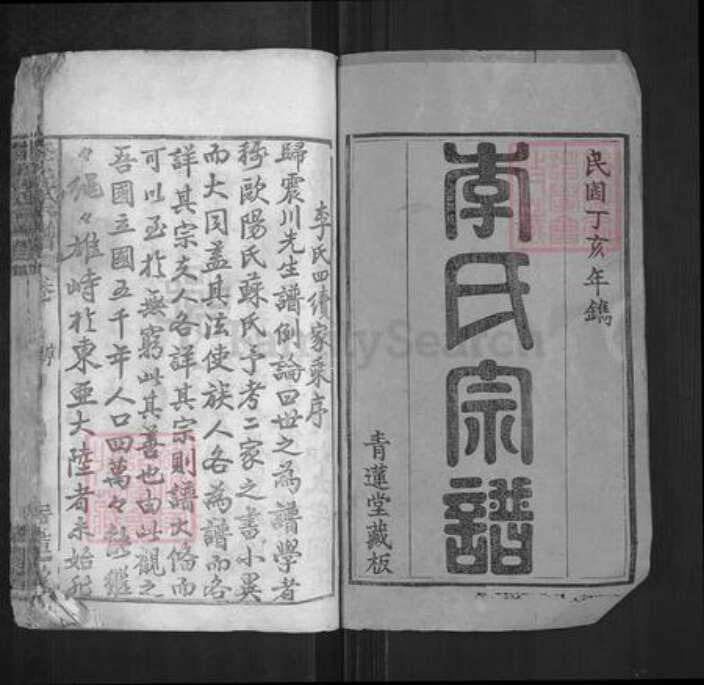 民國丁亥年鐫
李氏宗譜
青蓮堂藏板
李氏四續家乘序
歸震川先生譜例論曰世之為譜學者
稱歐陽氏蘇氏予考二家之書小異
而大同蓋其法使族人各為譜而各
詳其宗支人各詳其宗則譜大備而
可以至於無窮此其善也由此觀之
吾國立國五千年人口四萬々能繼
々繩々雄峙於東亞大陸者未始
FamilySearch